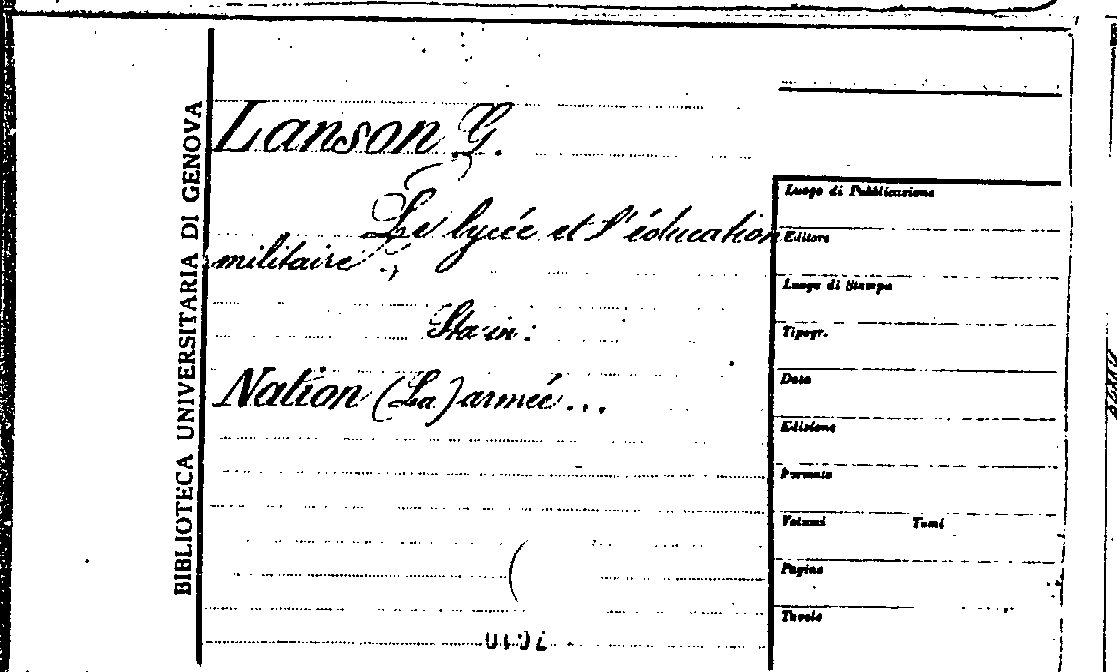 BIBLIOTECA UNIVERSITARIA DI GENOVA
Lanson G.
Le lycée et l'éducation
militaire.,
Sta in:
Nation (La) armée...
Luogo di Pubblicazione
Editore
Luogo di Stampa
Tipogr.
Data
Edizione
Formato
Volumi Tomi
Pagine
Tavole